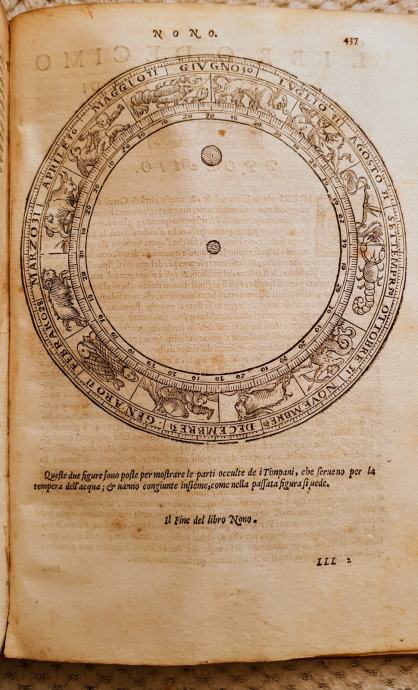 NONO.
437
GIVGNO 30
LVGLIO 31
AGOSTO 31
OTTOBRE 31
NOVEMBRE 30
DECEMBRE 31
GENARO 31
FEBRARO 28
MARZO 31
APRILE 30
MAGGIO 31
Queste due figure sono poste per mostrare le parti occulte de i Timpani, che serueno per la
tempera dell'acqua; & uanno congiunte insieme, come nella passata figura si uede.
Il Fine del libro Nono.
LLL 2